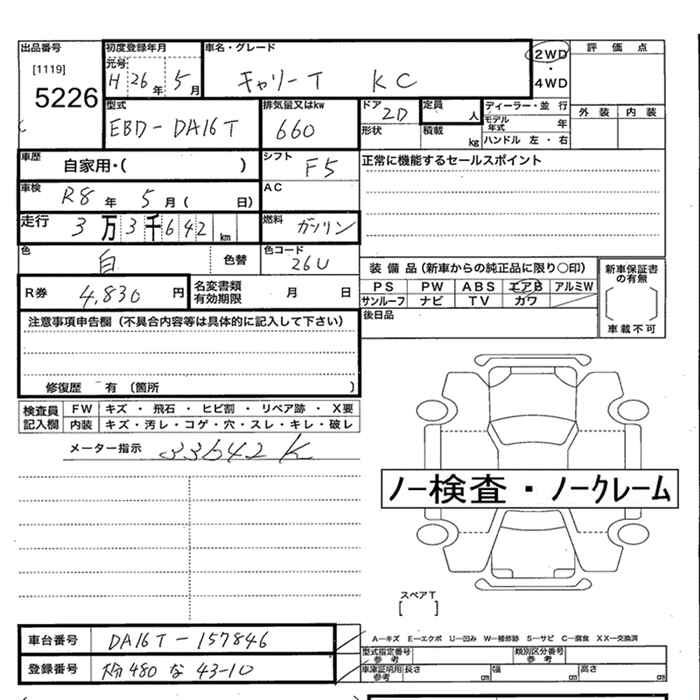 出品番号 初度登録年月 車名・グレード 評 価 点
[1119] 元号 H 26 年 5 月 キャリーT KC 2WD ・ 4WD
5226
型式 排気量又はkw ドア 2D 定員 人 ディーラー・並 行 外 装 内 装
EBD-DA16T 660 形状 積載 kg モデル年式 年
ハンドル 左・右
車歴 自家用・( ) シフト F5 正常に機能するセールスポイント
車検 R8 年 5 月 ( 日) AC
走行 3 万 3 千 6 4 2 km 燃料 ガソリン
色 白 色替 色コード 26U
装 備 品 (新車からの純正品に限り〇印) 新車保証書の有無
R券 4,830 円 名変書類有効期限 月 日 PS PW ABS エアB アルミW
サンルーフ ナビ TV カワ
[ ]
車載不可
注意事項申告欄 (不具合内容等は具体的に記入して下さい) 後日品
修復歴 有 (箇所 )
検査員記入欄 FW キズ ・ 飛石 ・ ヒビ割 ・ リペア跡 ・ X要
内装 キズ・汚レ・コゲ・穴・スレ・キレ・破レ
メーター指示 33642K
ノー検査・ノークレーム
スペアT
[ ]
車台番号 DA16T-157846
A―キズ E―エクボ U―凹み W―補修跡 S―サビ C―腐食 XX―交換済
型式指定番号 参考 類別区分番号 参考
登録番号 480 な 43-10
車庫証明用 参考 長さ cm 幅 cm 高さ cm